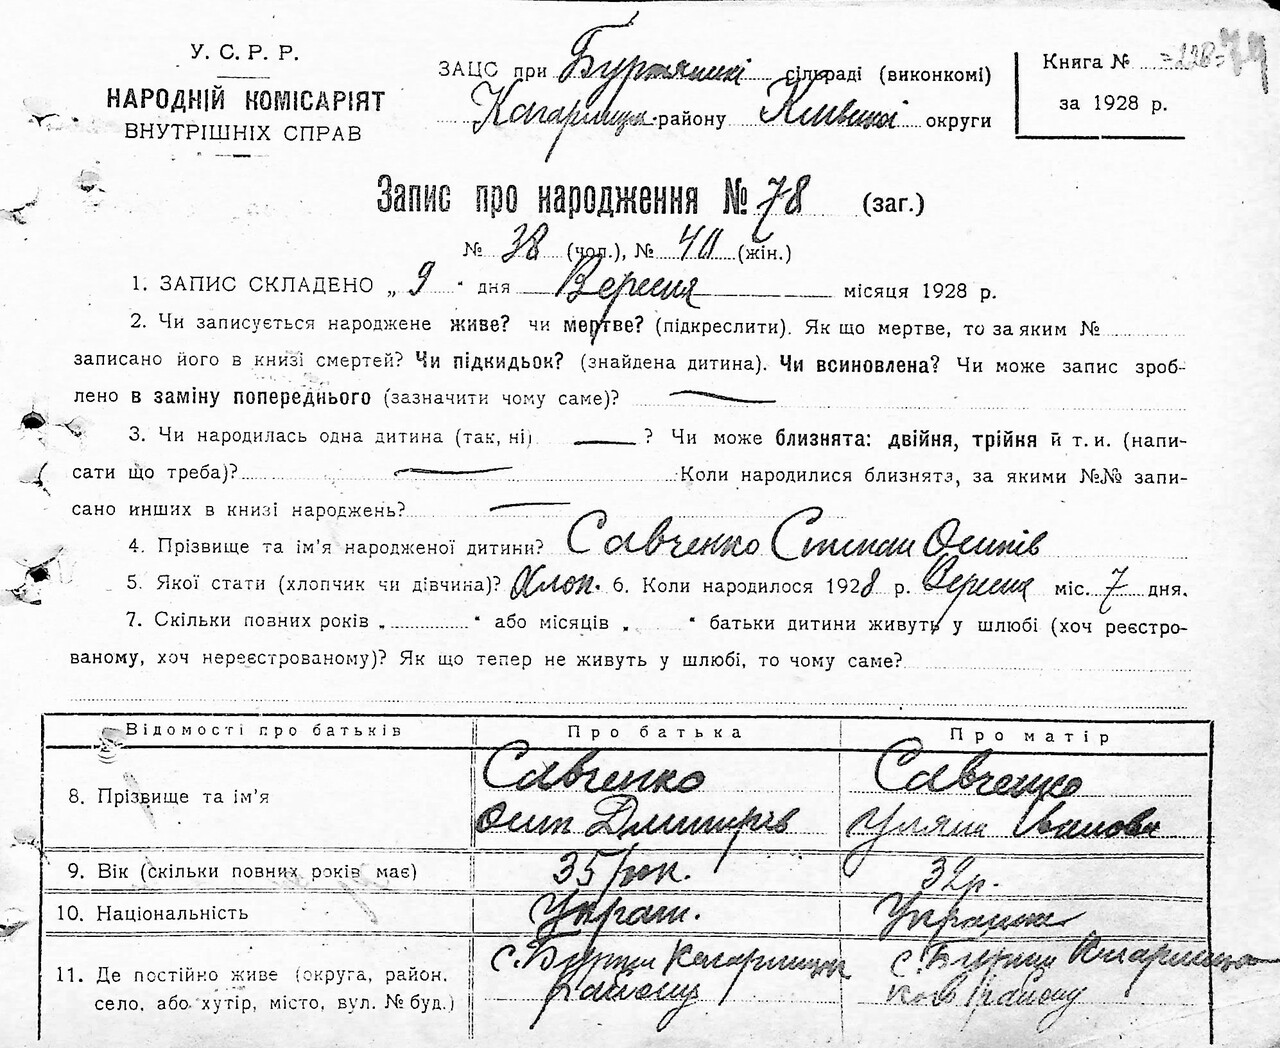 У. С. Р. Р.
НАРОДНІЙ КОМІСАРІЯТ
ВНУТРІШНІХ СПРАВ
ЗАЦС при сільраді (виконкомі)
району округи
Книга №
за 1928 р.
Запис про народження № 78 (заг.)
№ 38 (чол.), № 40 (жін.)
1. ЗАПИС СКЛАДЕНО „ 9 " дня Вересня місяця 1928 р.
2. Чи записується народжене живе? чи мертве? (підкреслити). Як що мертве, то за яким №
записано його в книзі смертей? Чи підкидьок? (знайдена дитина). Чи всиновлена? Чи може запис зроб-
лено в заміну попереднього (зазначити чому саме)? —
3. Чи народилась одна дитина (так, ні) — ? Чи може близнята: двійня, трійня й т. и. (напи-
сати що треба)? — Коли народилися близнята, за якими №№ запи-
сано инших в книзі народжень? —
4. Прізвище та ім'я народженої дитини? Савченко Степан Осипів
5. Якої стати (хлопчик чи дівчина)? Хлоп. 6. Коли народилося 1928 р. Вересня міс. 7 дня.
7. Скільки повних років „ " або місяців „ " батьки дитини живуть у шлюбі (хоч реєстро-
ваному, хоч нереєстрованому)? Як що тепер не живуть у шлюбі, то чому саме?
Відомості про батьків Про батька Про матір
8. Прізвище та ім'я Савченко Савченко
Осип Дмитрів Уляна Іванова
9. Вік (скільки повних років має) 35 рок. 32 р.
10. Національність Украін. Украінка
11. Де постійно живе (округа, район, с. с.
село, або хутір, місто, вул. № буд.) району району